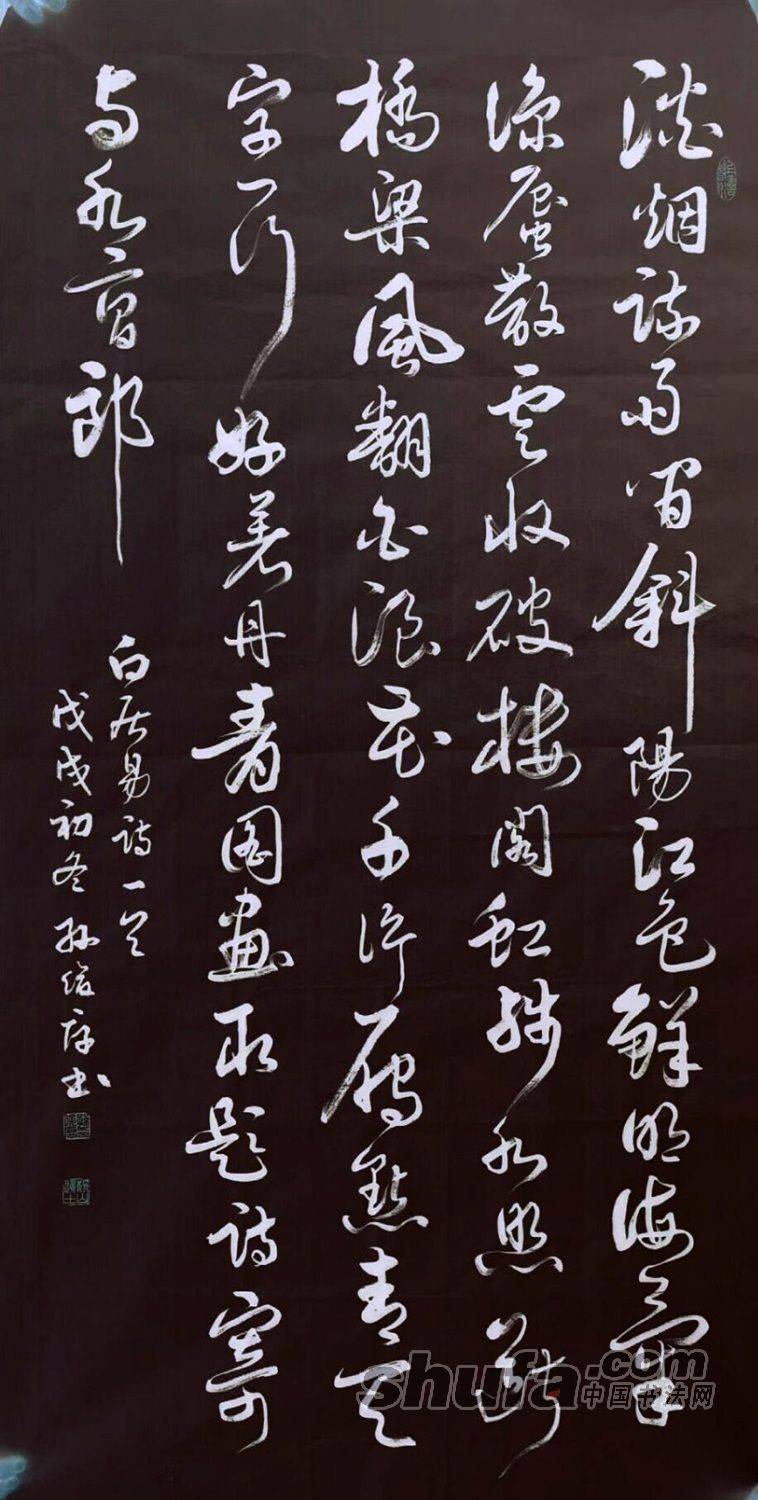 淡烟疏雨间斜陽江色鲜明海氣
凉蜃散雲收破楼阁虹残水照断
橋梁風翻白浪花千片雁點青天
字一行好著丹青图畫取题诗寄
与水曹郎
白居易诗一首
戊戌初冬孙书
shufa.com
中国书法网